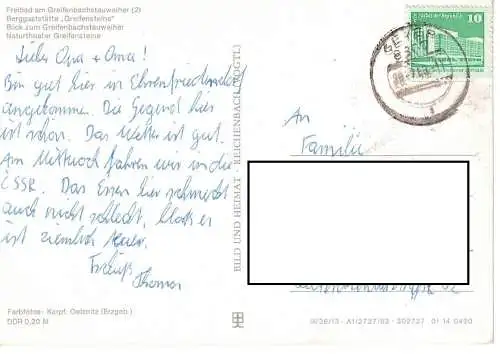 Freibad am Greifenbachstauweiher (2)
Berggaststätte „Greifensteine"
Blick zum Greifenbachstauweiher
Naturtheater Greifensteine
Lieber Opa + Oma!
Bin gut hier in Ehrenfriedersdorf
angekommen. Die Gegend hier
ist schön. Das Wetter ist gut.
Am Mittwoch fahren wir in die
ČSSR. Das Essen hier schmeckt
auch nicht schlecht, bloß es
ist ziemlich
Gruß
Thomas
Farbfotos: Karpf, Oelsnitz (Erzgeb.)
DDR 0,20 M
BILD UND HEIMAT · REICHENBACH (VOGTL)
10
An
Familie
A1/2727/83 302727 01 14 0420